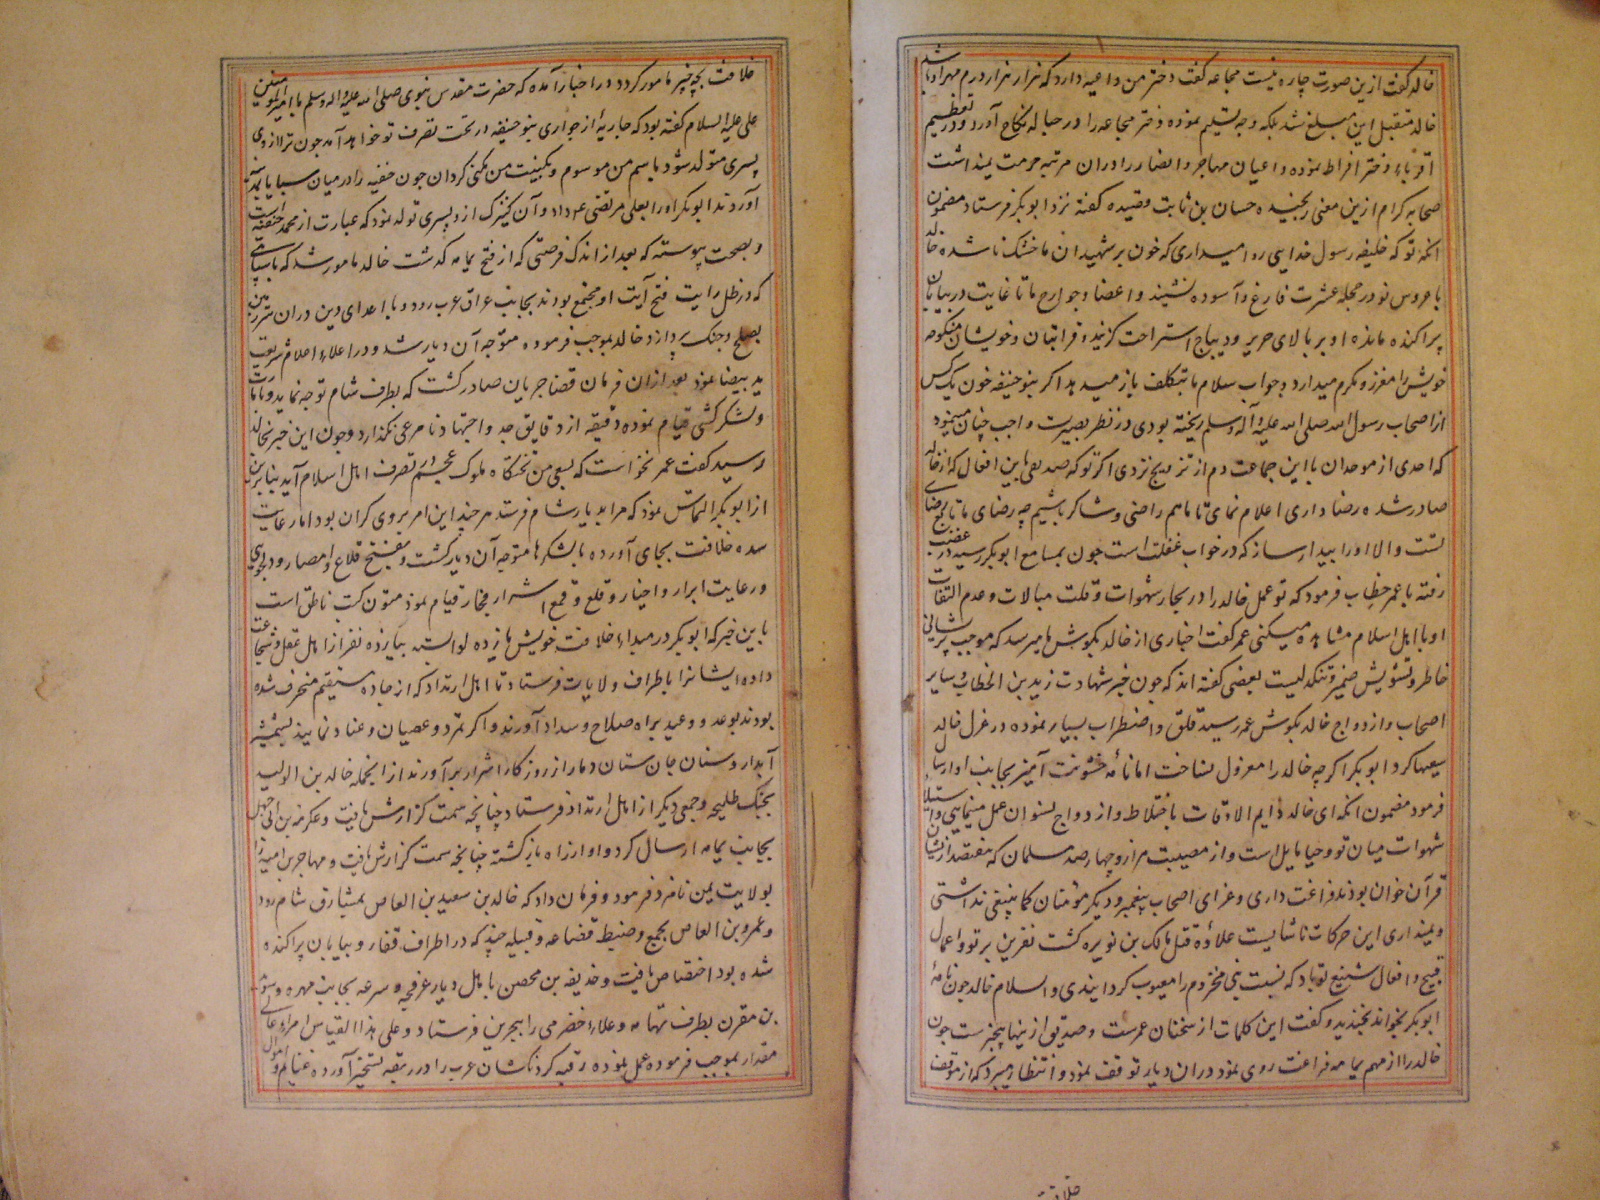 خالد گفت ازین صورت چاره نیست مجاعه گفت دختر من داعیه دارد که هزار هزار درم مهر او باشد
خالد متقبل این مبلغ شد بلکه وجه تسلیم نموده دختر مجاعه را در حباله نکاح آورد و در تعظیم
اقرباء دختر افراط نموده و اعیان مهاجر و انصار را در آن مرتبه حرمت نمیداشت
صحابه کرام ازین معنی رنجیده حسان بن ثابت قصیده گفته نزد ابوبکر فرستاد مضمون
آنکه تو که خلیفه رسول خدایی روا میداری که خون بر شهیدان ما خشک ناشده خالد
با عروس نو در حجله عشرت فارغ و آسوده نشیند و اعضا و جوارح ما تا غایت در بیابان
پراکنده مانده او بر بالای حریر و دیباج استراحت گزیند و قرابتان و خویشان منکوحه
خویش را معزز و مکرم میدارد و جواب سلام ما بتکلف باز میدهد اگر بنو حنیفه خون یک کس
از اصحاب رسول الله صلی الله علیه وآله وسلم ریخته بودی در نظر بصیرت واجب چنان مینمود
که احدی از موحدان با این جماعت دم از تزویج نزدی اگر تو که صدیقی باین افعال که از خالد
صادر شده رضا داری اعلام نمای تا ما هم راضی و شاکر باشیم چه رضای ما تابع رضای
تست والا او را بیدار ساز که در خواب غفلت است چون بمسامع ابوبکر رسید در غضب
رفته با عمر خطاب فرمود که تو عمل خالد را در بحار شهوات و قلت مبالات و عدم التفات
او با اهل اسلام مشاهده میکنی عمر گفت اخباری از خالد بگوش ها میرسد که موجب پریشانی
خاطر و تشویش ضمیر و تنکدلیست بعضی گفته اند که چون خبر شهادت زید بن الخطاب و سایر
اصحاب و ازدواج خالد بگوش عمر رسید قلق و اضطراب بسیار نموده در عزل خالد
سعیها کرد ابوبکر اگرچه خالد را معزول نساخت اما نامهٔ خشونت آمیز بجانب او ارسال
فرمود مضمون آنکه ای خالد دایم الاوقات باختلاط و ازدواج نسوان عمل مینمایی و استیلاء
شهوات میان تو و حیا حایل است و از مصیبت هزار و چهارصد مسلمان که هفتصد از ایشان
قرآن خوان بودند فراغت داری و عزای اصحاب پیغمبر و دیگر مؤمنان کما ینبغی نداشتی
و پنداری این حرکات ناشایست علاوه قتل مالک بن نویره گشت نفرین بر تو و اعمال
قبیح و افعال شنیع تو باد که نسبت بنی مخزوم را معیوب گردانیدی والسلام خالد چون نامهٔ
ابوبکر بخواند بخندید و گفت این کلمات از سخنان عمرست و صدیق ازینها بیخبرست چون
خالد را از مهم یمامه فراغت روی نمود در آن دیار توقف نمود و انتظار میبرد که از موقف
خلافت
خلافت بچه چیز مامور گردد در اخبار آمده که حضرت مقدس نبوی صلی الله علیه واله وسلم با امیر المومنین
علی علیه السلام گفته بود که جاریهٔ از جواری بنو حنیفه در تحت تصرف تو خواهد آمد چون ترا از وی
پسری متولد شود باسم من موسوم و بکنیت من مکنی گردان چون حنفیه را در میان سبایا بمدینه
آوردند ابوبکر او را بعلی مرتضی ع م داد و آن کنیزک ازو پسری تولد نمود که عبارت از محمد حنفیه است
و بصحت پیوسته که بعد از اندک فرصتی که از فتح یمامه گذشت خالد مامور شد که با سپاهی
که در ظل رایت فتح آیت او مجتمع بودند بجانب عراق عرب رود و با اعدای دین در آن سرزمین
بصلح و جنگ پردازد خالد بموجب فرموده متوجه آن دیار شد و در اعلاء اعلام شریعت
ید بیضا نمود بعد از آن فرمان قضا جریان صادر گشت که بطرف شام توجه نماید و بامارت
و لشکر کشی قیام نموده دقیقه از دقایق جد و اجتهاد نامرعی نگذارد و چون این خبر بخالد
رسید گفت عمر نخواست که بسعی من تختگاه ملوک عجم بتصرف اهل اسلام آید بنابرین
از ابوبکر التماس نمود که مرا بدیار شام فرستد هر چند این امر بر وی گران بود اما رعایت
سده خلافت بجای آورده با لشکرها متوجه آن دیار گشت و بفتح قلاع و امصار و دلجویی
و رعایت ابرار و اخیار و قلع و قمع اشرار فجار قیام نمود متون کتب ناطق است
باین خبر که ابوبکر در مبداء خلافت خویش یازده لوا بسته بیازده نفر از اهل عقل و شجاعت
داده ایشانرا باطراف ولایات فرستاد تا اهل ارتداد که از جاده مستقیم منحرف شده
بودند بوعد و وعید براه صلاح و سداد آورند و اگر تمرد و عصیان و عناد نمایند بشمشیر
آبدار و سنان جان ستان دمار از روزگار اشرار برآورند از انجمله خالد بن الولید
بجنگ طلیحه و جمعی دیگر از اهل ارتداد فرستاد چنانچه سمت گزارش یافت و عکرمه بن ابی جهل
بجانب یمامه ارسال کرد و او از راه بازگشته چنانچه سمت گزارش یافت و مهاجر بن امیه را
بولایت یمن نامزد فرمود و فرمان داد که خالد بن سعید بن العاص بمشارق شام رود
و عمرو بن العاص بجمع و ضبط قضاعه و قبیله چند که در اطراف قفار و بیابان پراکنده
شده بود اختصاص یافت و حذیفه بن محصن باهل دیار عرفجه و سرعه بجانب مهره و سوید
بن مقرن بطرف تهامه و علاء حضرمی را ببحرین فرستاد و علی هذا القیاس امراء عالی
مقدار بموجب فرموده عمل نموده رقبه گردنکشان عرب را در ربقه تسخیر آورده غنایم و اموال